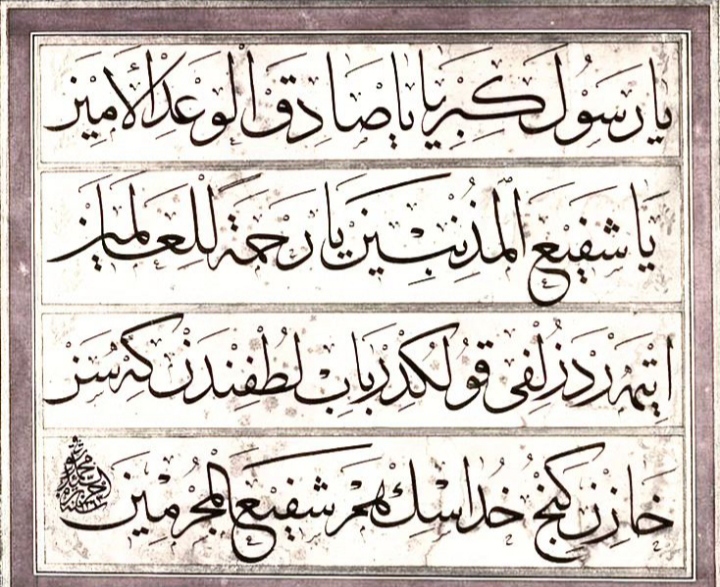 يَا رَسُولَ كِبْرِيَا يَا صَادِقَ الْوَعْدِ الْأَمِينْ
يَا شَفِيعَ الْمُذْنِبِينْ يَا رَحْمَةً لِلْعَالَمِينْ
ايتمه رد زلفى قولكدر باب لطفندن كه سز
خازن كنج خداسك هم شفيع المجرمين